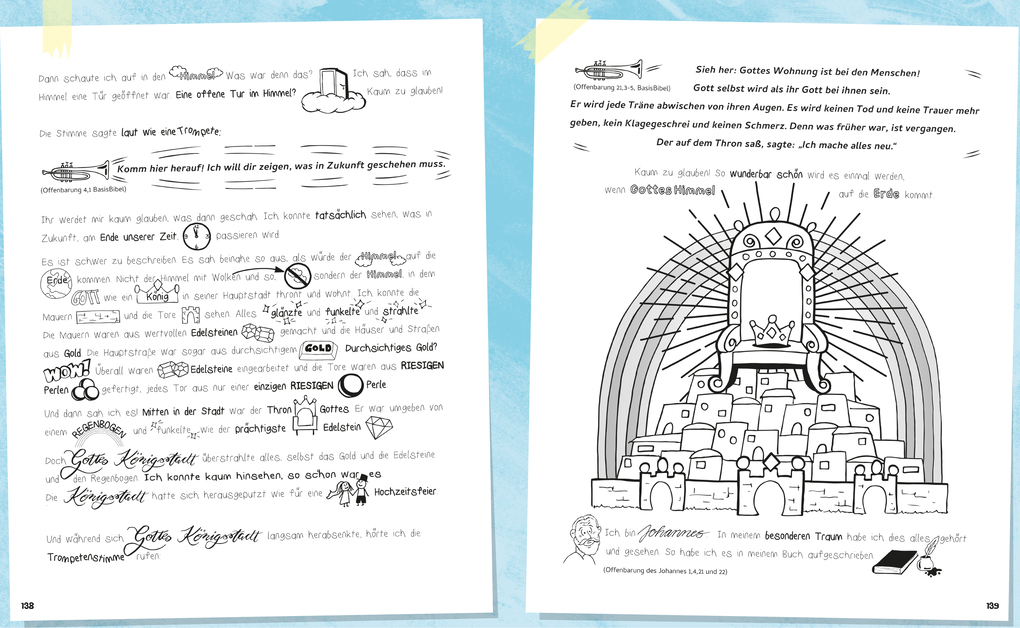 Dann schaute ich auf in den Himmel Was war denn das? Ich sah, dass im
Himmel eine Tür geöffnet war Eine offene Tur im Himmel? Kaum zu glauben!
Die Stimme sagte laut wie eine Trompete:
Komm hier herauf! Ich will dir zeigen, was in Zukunft geschehen muss.
(Offenbarung 4,1 BasisBibel)
Ihr werdet mir kaum glauben, was dann geschah. Ich konnte tatsächlich sehen, was in
Zukunft, am Ende unserer Zeit, passieren wird
Es ist schwer zu beschreiben. Es sah beinahe so aus, als würde der Himmel auf die
Erde kommen. Nicht der Himmel mit Wolken und so, sondern der Himmel, in dem
GOTT wie ein König in seiner Hauptstadt thront und wohnt. Ich konnte die
Mauern und die Tore sehen. Alles glänzte und funkelte und strahlte
Die Mauern waren aus wertvollen Edelsteinen gemacht und die Häuser und Straßen
aus Gold. Die Hauptstraße war sogar aus durchsichtigem GOLD Durchsichtiges Gold?
WOW! Überall waren Edelsteine eingearbeitet und die Tore waren aus RIESIGEN
Perlen gefertigt, jedes Tor aus nur einer einzigen RIESIGEN Perle.
Und dann sah ich es! Mitten in der Stadt war der Thron Gottes. Er war umgeben von
einem REGENBOGEN und funkelte wie der prächtigste Edelstein
Doch Gottes Königsstadt überstrahlte alles, selbst das Gold und die Edelsteine
und den Regenbogen. Ich konnte kaum hinsehen, so schön war es
Die Königsstadt hatte sich herausgeputzt wie für eine Hochzeitsfeier
Und während sich Gottes Königsstadt langsam herabsenkte, hörte ich die
Trompetenstimme rufen
138
Sieh her: Gottes Wohnung ist bei den Menschen!
(Offenbarung 21,3-5, BasisBibel)
Gott selbst wird als ihr Gott bei ihnen sein.
Er wird jede Träne abwischen von ihren Augen. Es wird keinen Tod und keine Trauer mehr
geben, kein Klagegeschrei und keinen Schmerz. Denn was früher war, ist vergangen.
Der auf dem Thron saß, sagte: „Ich mache alles neu.“
Kaum zu glauben! So wunderbar schön wird es einmal werden,
wenn Gottes Himmel auf die Erde kommt
Ich bin Johannes In meinem besonderen Traum habe ich dies alles gehört
und gesehen. So habe ich es in meinem Buch aufgeschrieben.
(Offenbarung des Johannes 1,4,21 und 22)
139